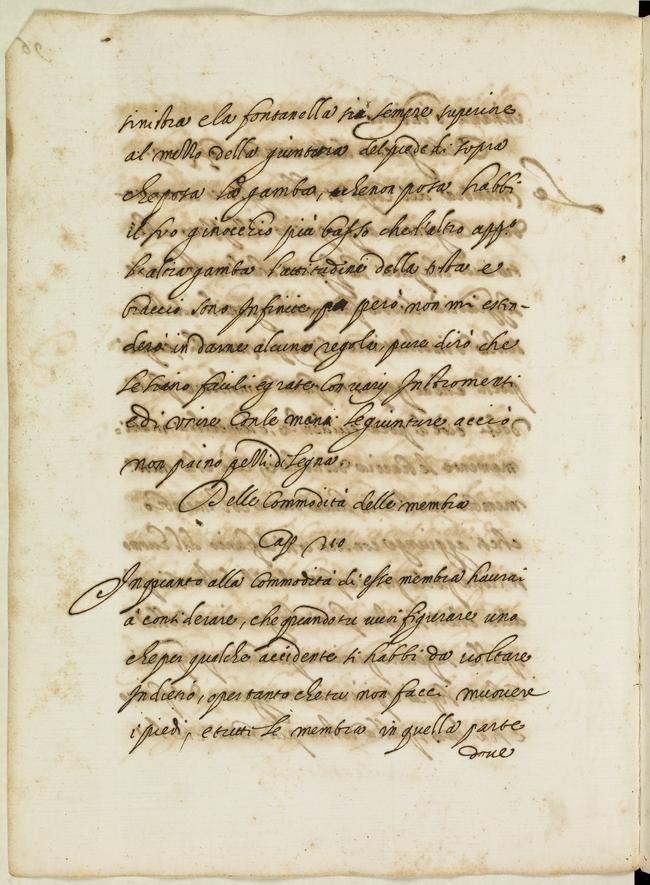 sinistra e la fontanella sia sempre superiore
al mezzo della giuntura del piede di sopra
che posa la gamba, che non posa habbi
il suo ginocchio più basso che l'altro app.o
l'altra gamba l'attitudine della testa e
braccio sono Infinite, però non mi esten-
derò in darne alcuna regola, pure dirò che
le siano facili e grate con varij Instromenti
e di unire con le mani le giunture acciò
non paino pezzi di legna.
Delle Commodità delle membra
Cap 110
In quanto alla Commodità di esse membra haurai
à considerare, che quando tu uuoi figurare uno
che per qualche accidente si habbi da uoltare
Indietro, o per tanto che tu non facci muouere
i piedi, e tutti le membra in quella parte
doue